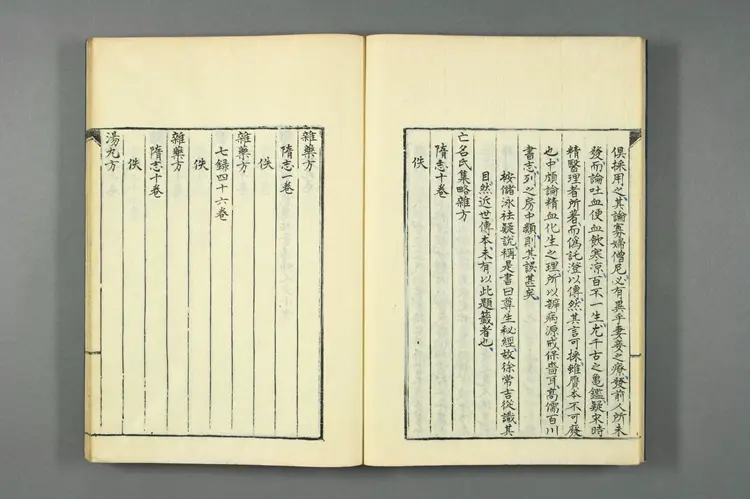 俱採用之其論寡婦僧尼必有異乎妻妾之療發前人所未
發而論吐血便血飲寒涼百不一生尤千古之龜鑑疑宋時
精醫理者所著而偽託澄以傳然其言可採雖贗本不可廢
也中頗論精血化生之理所以辨病源戒保嗇耳高儒百川
書志列之房中類則其誤甚矣
按儲泳祛疑說稱是書曰尊生秘經故徐常吉從識其
目然近世傳本未有以此題籤者也
亡名氏集略雜方
隋志十卷
佚
雜藥方
隋志一卷
佚
雜藥方
七錄四十六卷
佚
雜藥方
隋志十卷
佚
湯丸方